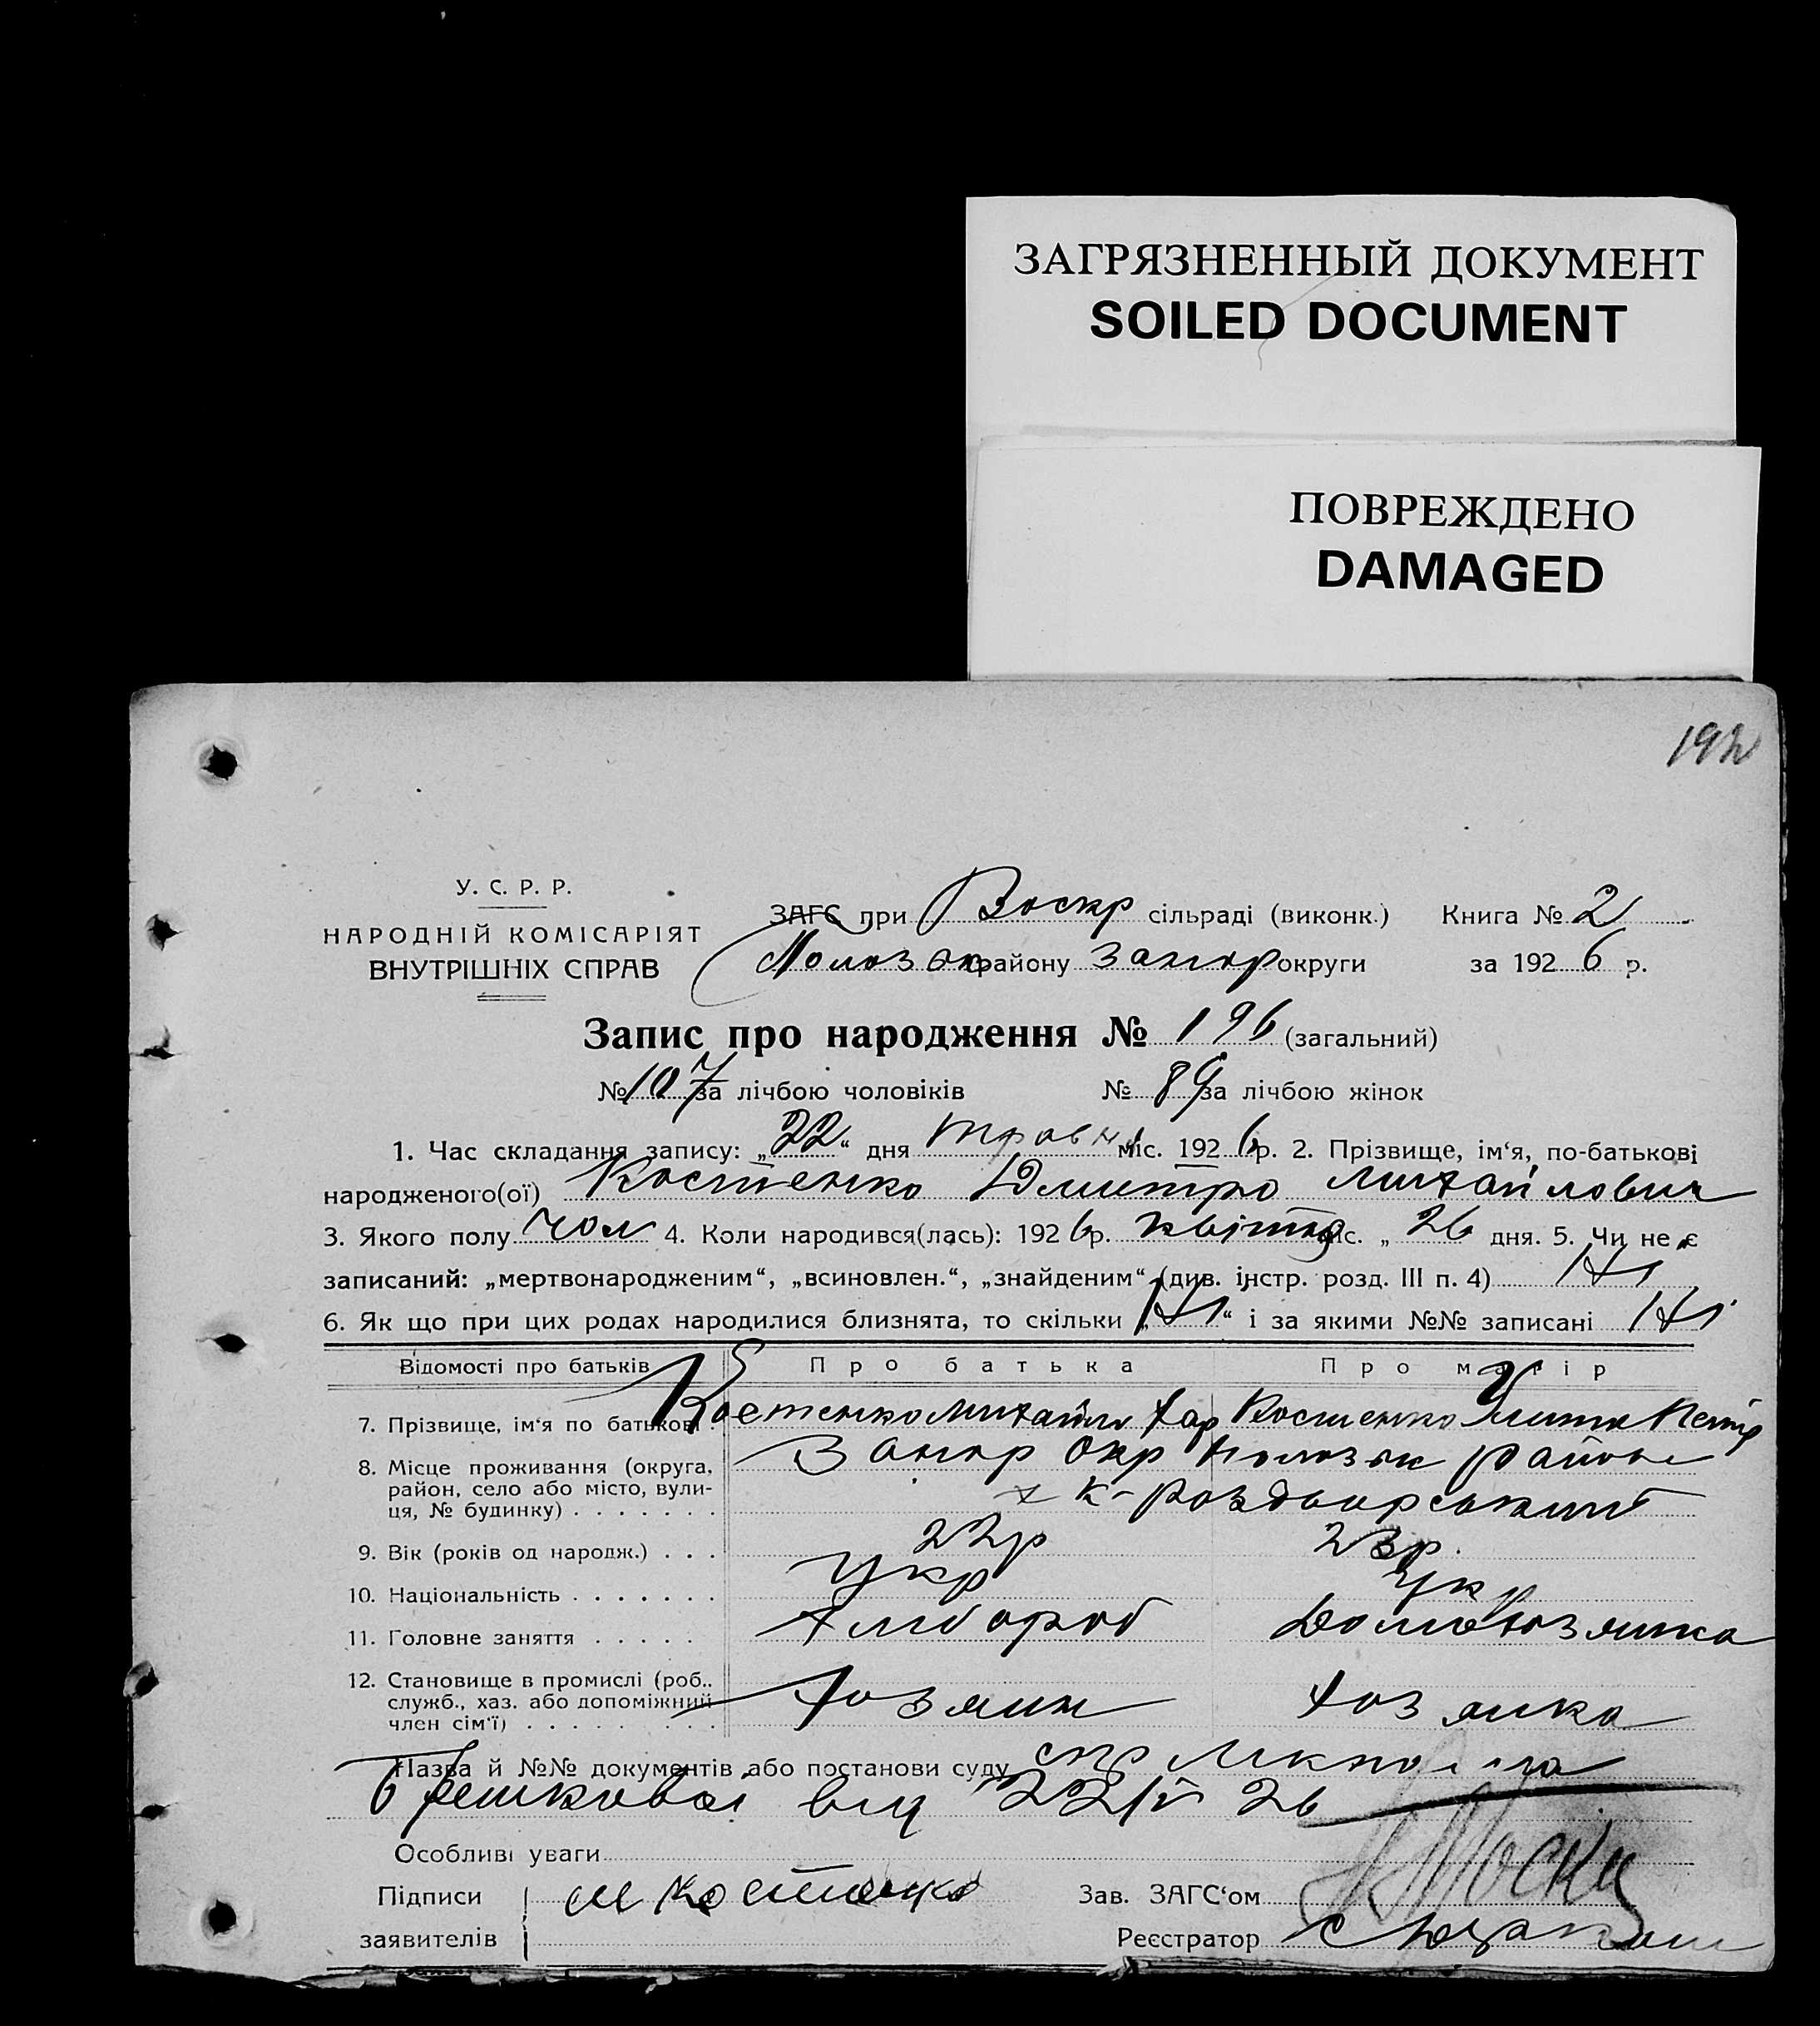 ЗАГРЯЗНЕННЫЙ ДОКУМЕНТ
SOILED DOCUMENT
ПОВРЕЖДЕНО
DAMAGED
У. С. Р. Р.
НАРОДНІЙ КОМІСАРІЯТ
ВНУТРІШНІХ СПРАВ
ЗАГС при Воскр сільраді (виконк.) Книга № 2
району Запор округи за 1926 р.
Запис про народження № 196 (загальний)
№ 107 за лічбою чоловіків № 89 за лічбою жінок
1. Час складання запису: „22“ дня травня міс. 1926 р. 2. Прізвище, ім‘я, по-батькові
народженого(ої) Костенко Дмитро Михайлович
3. Якого полу чол 4. Коли народився(лась): 1926 р. квітня міс. „26 дня. 5. Чи не є
записаний: „мертвонародженим“, „всиновлен.“, „знайденим“ (див. інстр. розд. III п. 4) Ні
6. Як що при цих родах народилися близнята, то скільки „Ні“ і за якими №№ записані Ні
Відомості про батьків Про батька Про матір
7. Прізвище, ім‘я по батькові. Костенко Михайло Хар Костенко Петр
8. Місце проживання (округа, район, село або місто, вулиця, № будинку) Запор окр району
9. Вік (років од народж.) 22р 23р.
10. Національність Укр Укр
11. Головне заняття Хлібороб Домохозяйка
12. Становище в промислі (роб., служб., хаз. або допоміжний член сім‘ї) Хозяин Хозяйка
Назва й №№ документів або постанови суду
від 22/V 26
Особливі уваги
Підписи М Костенко Зав. ЗАГС‘ом
заявителів Реєстратор